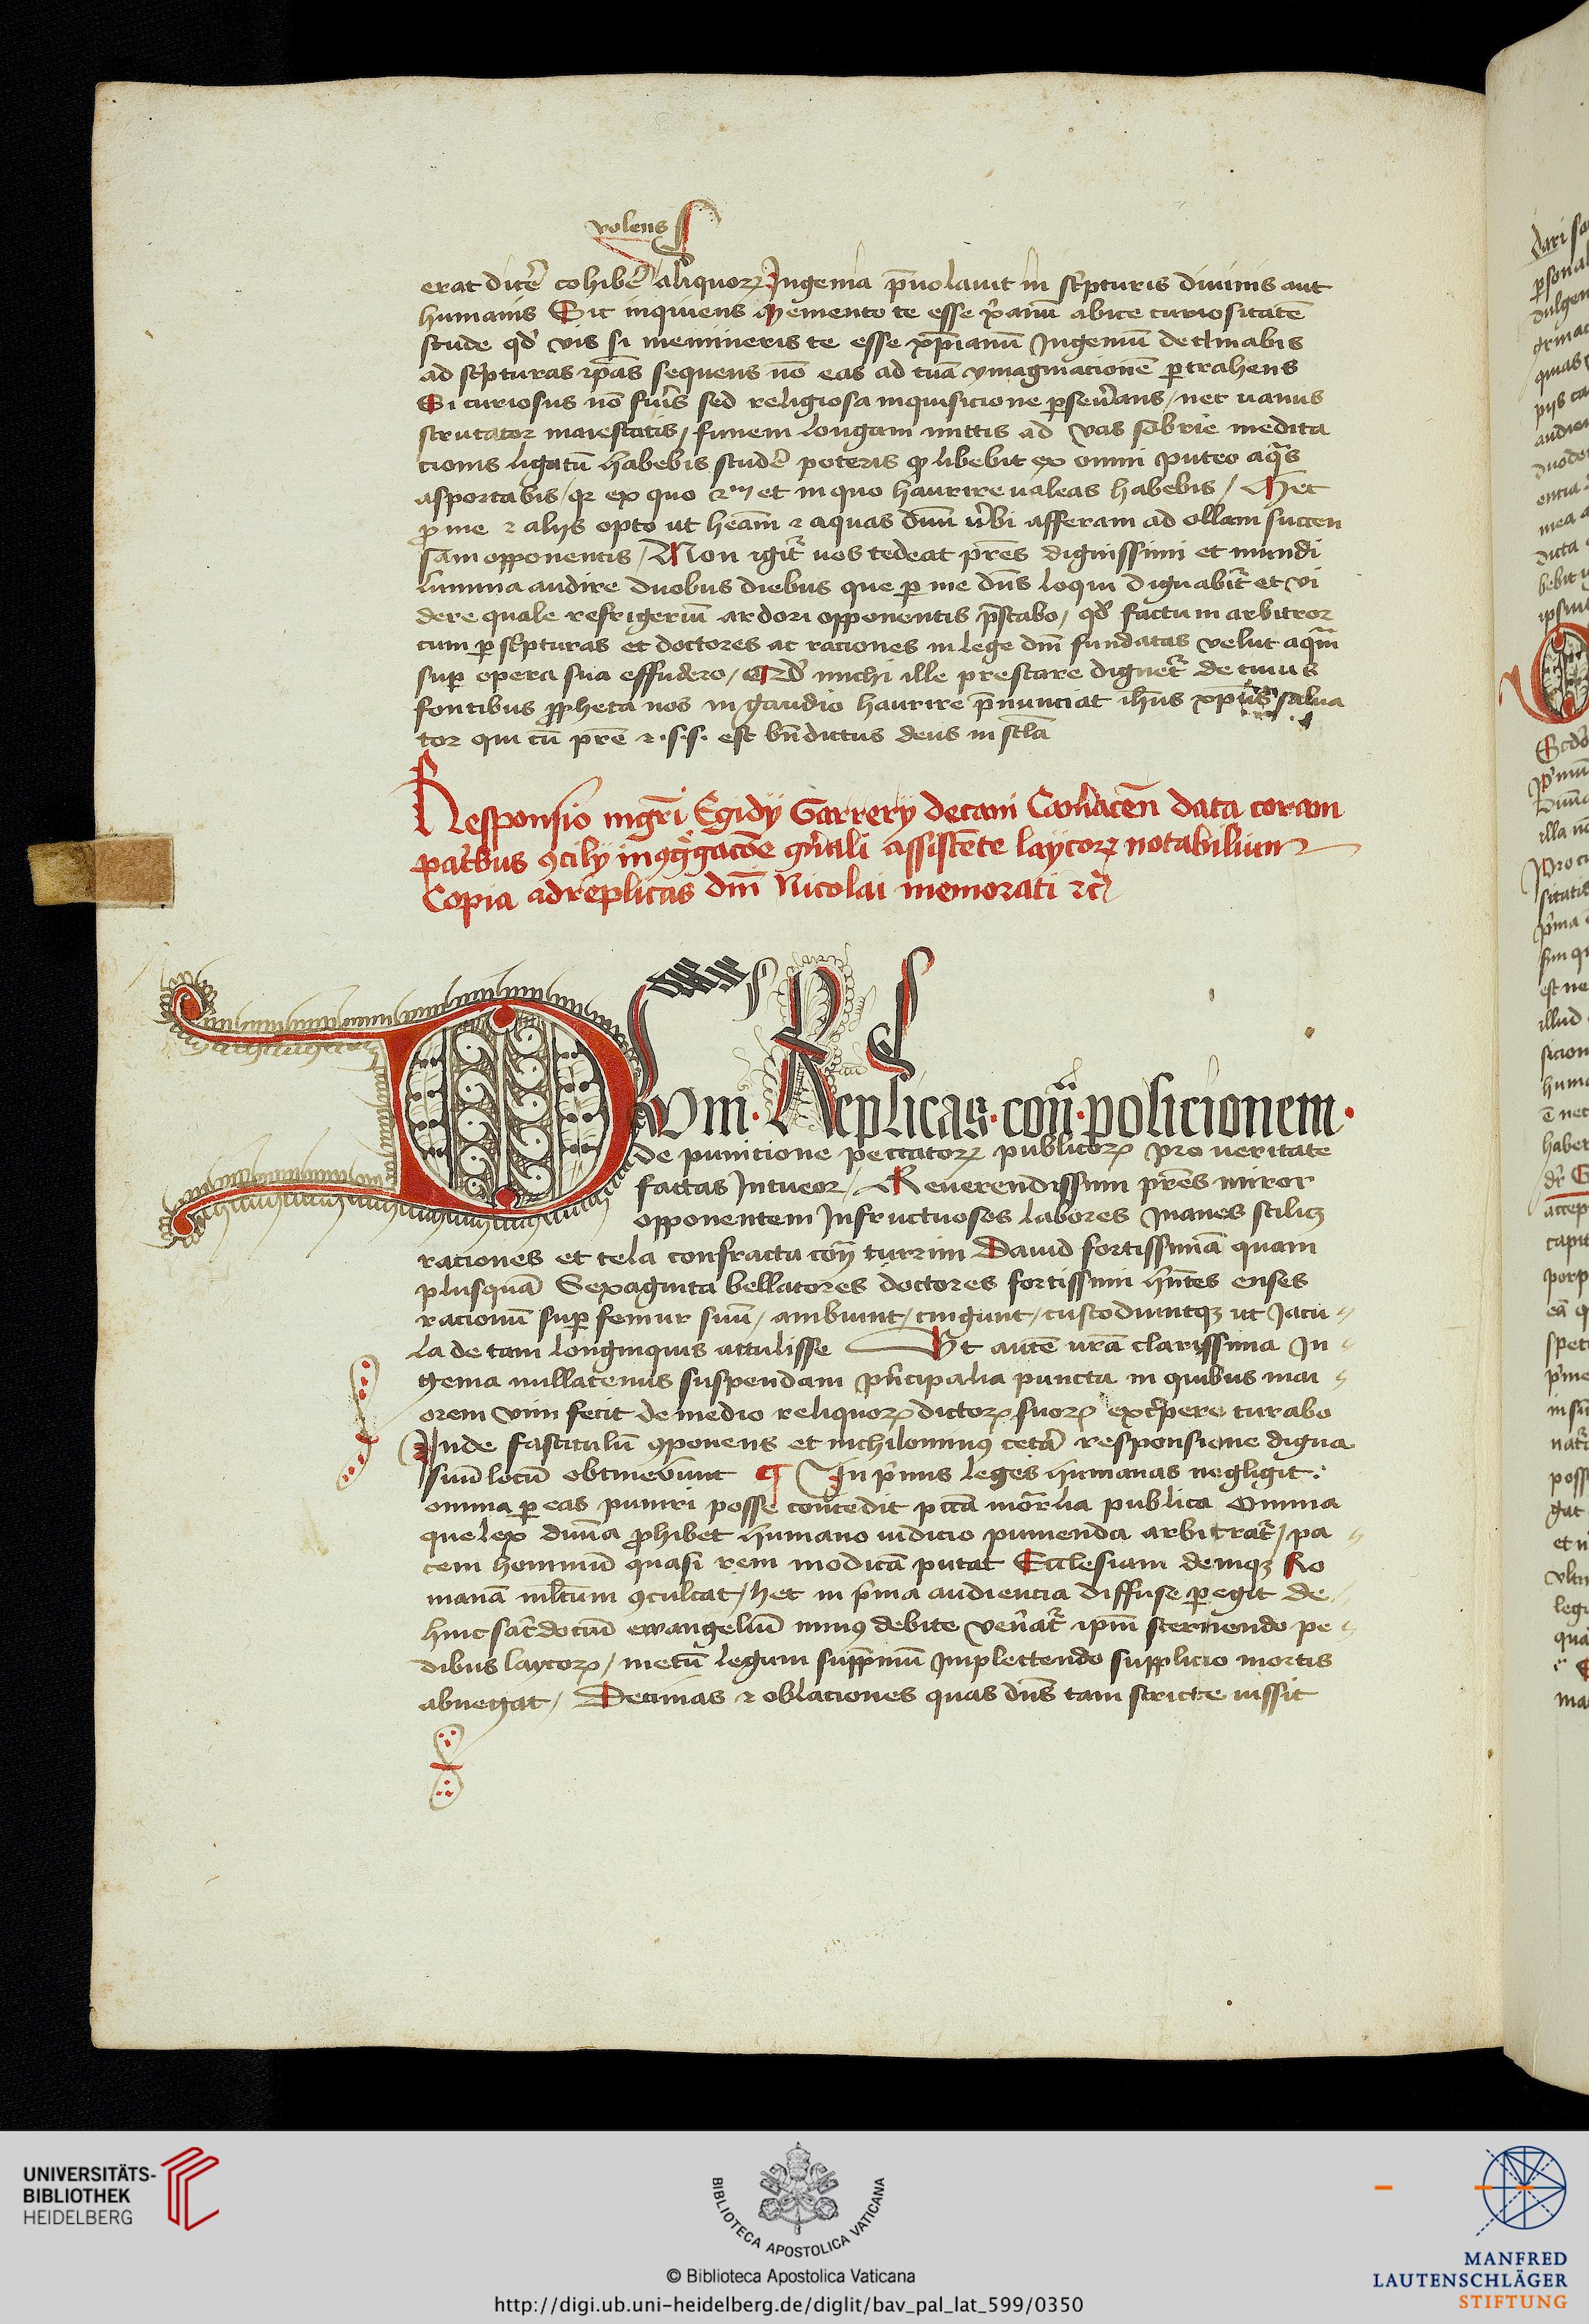 volens
erat dicẽ cohibẽ aliquoꝝ Ingenia p̃uolauit in sc̃pturis diuinis aut
humanis Sic inquiens Memento te esse xp̃anũ abice curiositatẽ
stude qđ vis si memineris te esse xp̃ianũ Ingeniũ declinabis
ad sc̃pturas ip̃as sequens nõ eas ad tuã ymaginacionẽ ꝑtrahens
Si curiosus nõ fueris sed religiosa inquisicione ꝑseũans / nec uanus
scrutator maiestatis / funem longam mittis ad vas sobrie medita
cionis ligatũ habebis studẽ poteris ꝙ libebit ex omni puteo aquas
asportabis / qꝛ ex quo et in quo haurire ualeas habebis / Hec
ꝓ me ⁊ alijs opto ut aquas diuini v̾bi afferam ad ollam succen
sam opponentis / Non igit᷑ uos tedeat pr̃es dignissimi et mundi
lumina audire duobus diebus que ꝑ me dñs loqui dignabit᷑ et vi
dere quale refrigeriũ ardori opponentis p̃stabo / qđ factum arbitror
cum ꝑ sc̃pturas et doctores ac raciones in lege dm̃ fundatas velut aquam
suꝑ opera sua effudero / Qđ michi ille prestare dignet᷑ de cuius
fontibus ꝓpheta nos in gaudio haurire p̃nunciat ih̃us xp̃us salua
tor qui cũ pr̃e ⁊ .s.s. est bñdictus deus in sc̃la
Responsio mgr̃i Egidij Carrerij decani Cam̃acen̄ data coram
patribus ꝯcilij in ꝯg̃gacõe gñali assistẽte laycoꝝ notabilium
Copia ad replicas dm̃ Nicolai memorati ⁊c̃
Dvm · Replicas · cont̃ · posicionem ·
de punicione peccatoꝝ publicoꝝ pro ueritate
factas Intueor / Reuerendissimi pr̃es miror
opponentem Infructuosos labores Inanes scilicꝫ
raciones et tela confracta cont̃ turrim Dauid fortissimã quam
plusquã Sexaginta bellatores doctores fortissimi hñtes enses
racionũ suꝑ femur suũ / ambiunt / cingunt / custodiuntqꝫ ut Iacu
la de tam longinquis attulisse Vt autẽ ur̃a clarissima In
genia nullatenus suspendam pñcipalia puncta in quibus mai
orem vim fecit de medio reliquoꝝ dictoꝝ suoꝝ exc̃pere curabo
Inde fasciculũ ꝯponens et nichilominꝰ cetã responsione digna
suũ locũ obtinebunt ¶ In p̃mis leges humanas negligit :
omnia ꝑ eas puniri posse concedit pcc̃a mor̃lia publica Omnia
que lex diuina ꝓhibet humano iudicio punienda arbitrat᷑ / pa
cem hominũ quasi rem modicã putat Ecclesiam deniqꝫ Ro
manã ml̃tum ꝯculcat / hec in p̃ma audiencia diffuse ꝑegit de
hinc sac̃dociũ ewangeliũ minꝰ debite veñat᷑ ip̃m sternendo pe
dibus laycoꝝ / metũ legum supp̃mũ Implectendo supplicio mortis
abnegat / Decimas ⁊ oblaciones quas dñs tam stricte iussit
UNIVERSITÄTS-
BIBLIOTHEK
HEIDELBERG
BIBLIOTECA APOSTOLICA VATICANA
© Biblioteca Apostolica Vaticana
http://digi.ub.uni-heidelberg.de/diglit/bav_pal_lat_599/0350
MANFRED
LAUTENSCHLÄGER
STIFTUNG